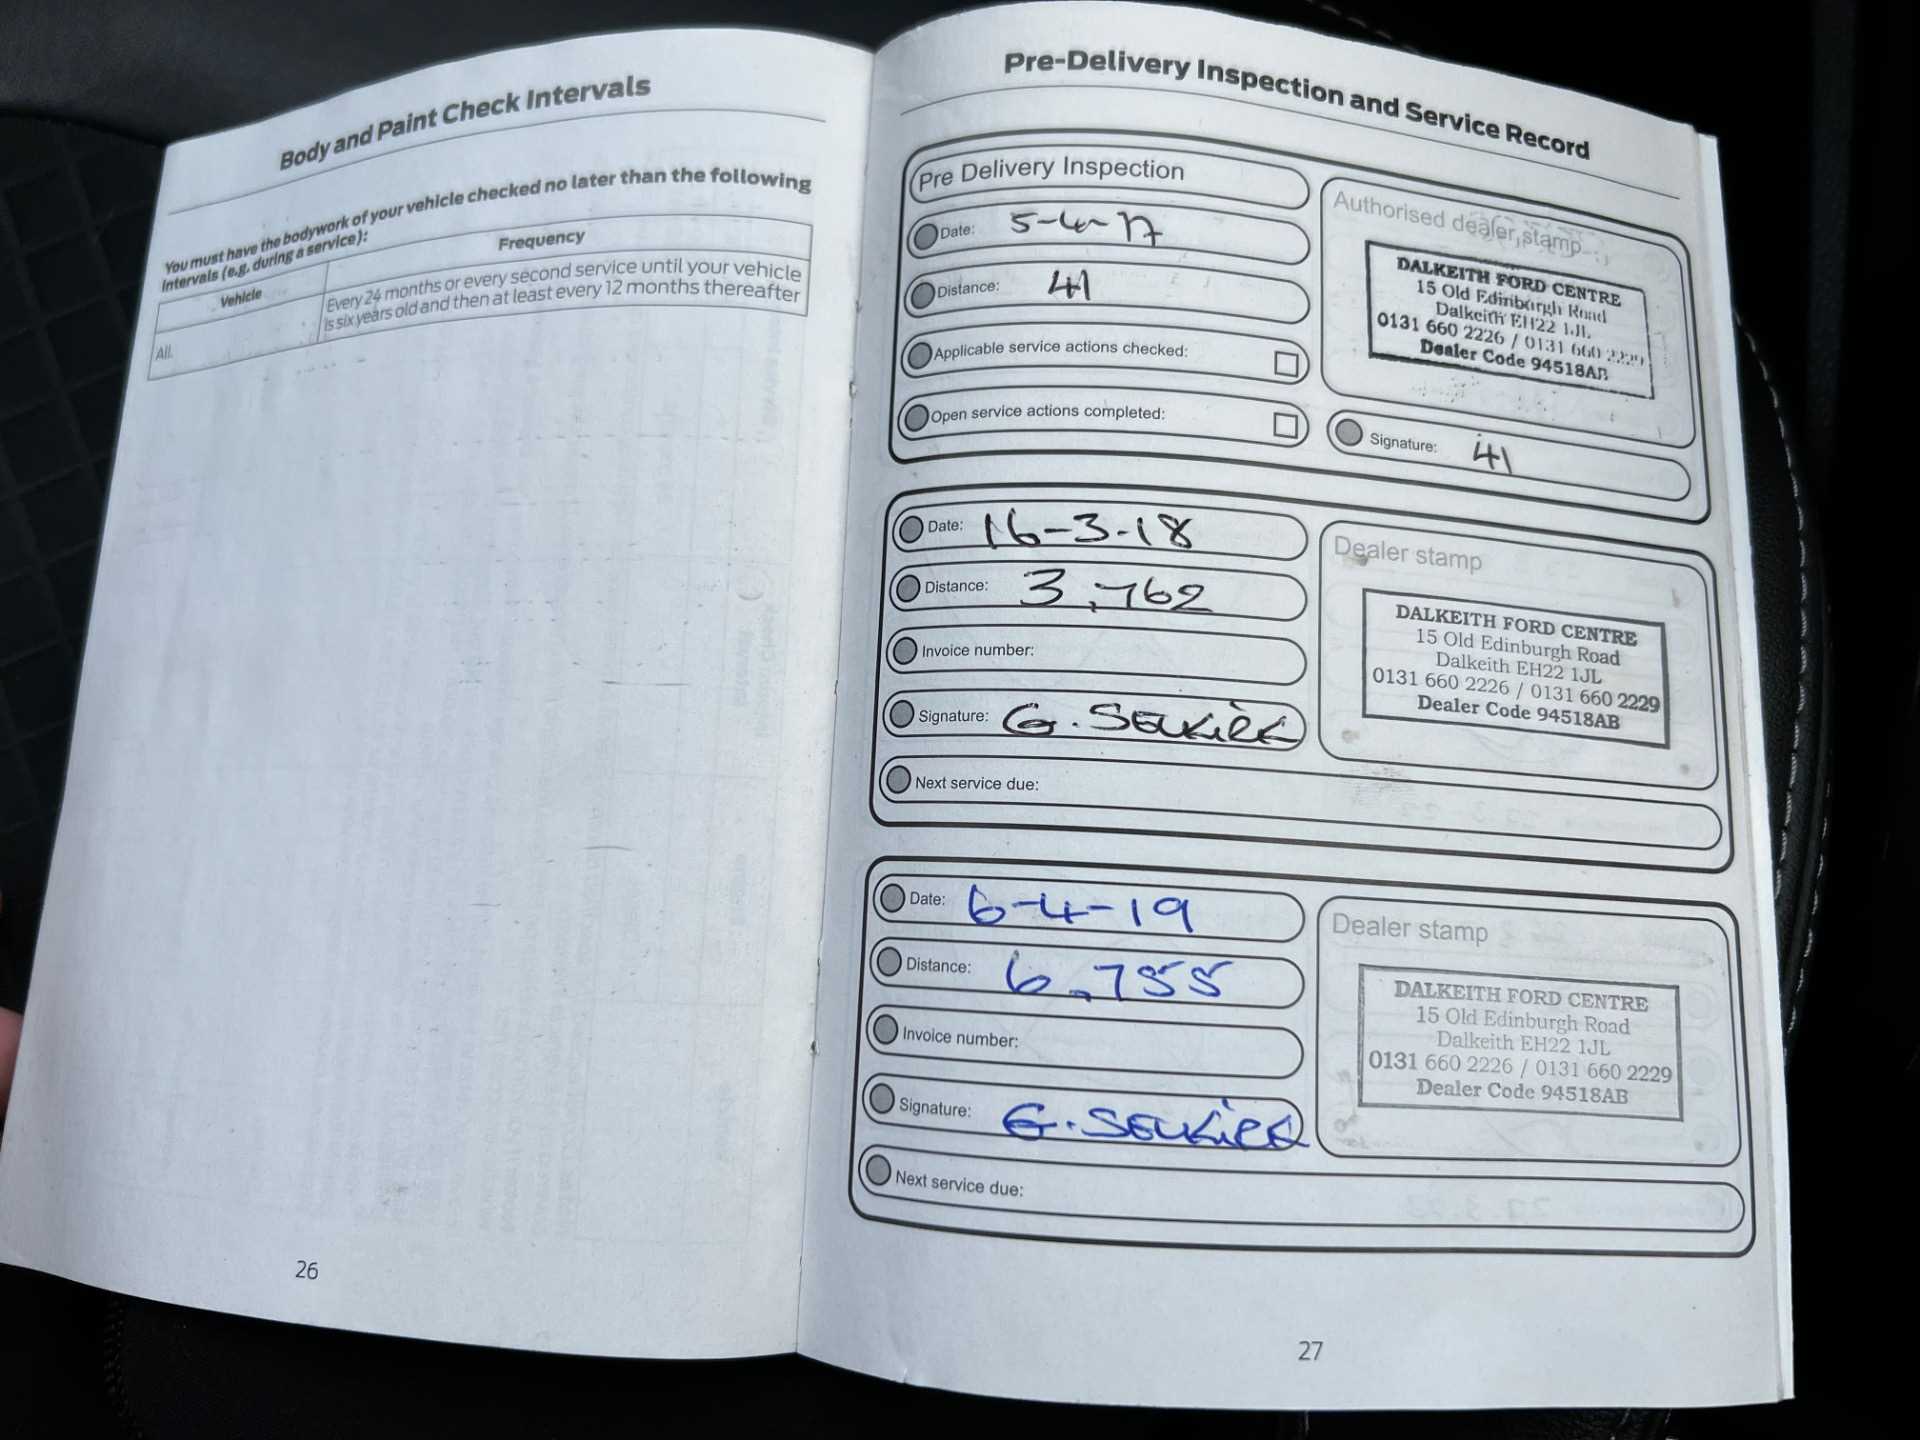 Body and Paint Check Intervals
You must have the bodywork of your vehicle checked no later than the following
intervals (e.g. during a service):
Vehicle
Frequency
All.
Every 24 months or every second service until your vehicle
is six years old and then at least every 12 months thereafter
26
Pre-Delivery Inspection and Service Record
Pre Delivery Inspection
Date: 5-4-17
Distance: 41
Applicable service actions checked:
Open service actions completed:
Authorised dealer stamp
DALKEITH FORD CENTRE
15 Old Edinburgh Road
Dalkeith EH22 1JL
0131 660 2226 / 0131 660 2229
Dealer Code 94518AB
Signature: 41
Date: 16-3-18
Distance: 3,762
Invoice number:
Signature: G. SELKIRK
Next service due:
Dealer stamp
DALKEITH FORD CENTRE
15 Old Edinburgh Road
Dalkeith EH22 1JL
0131 660 2226 / 0131 660 2229
Dealer Code 94518AB
Date: 6-4-19
Distance: 6,755
Invoice number:
Signature: G. SELKIRK
Next service due:
Dealer stamp
DALKEITH FORD CENTRE
15 Old Edinburgh Road
Dalkeith EH22 1JL
0131 660 2226 / 0131 660 2229
Dealer Code 94518AB
27